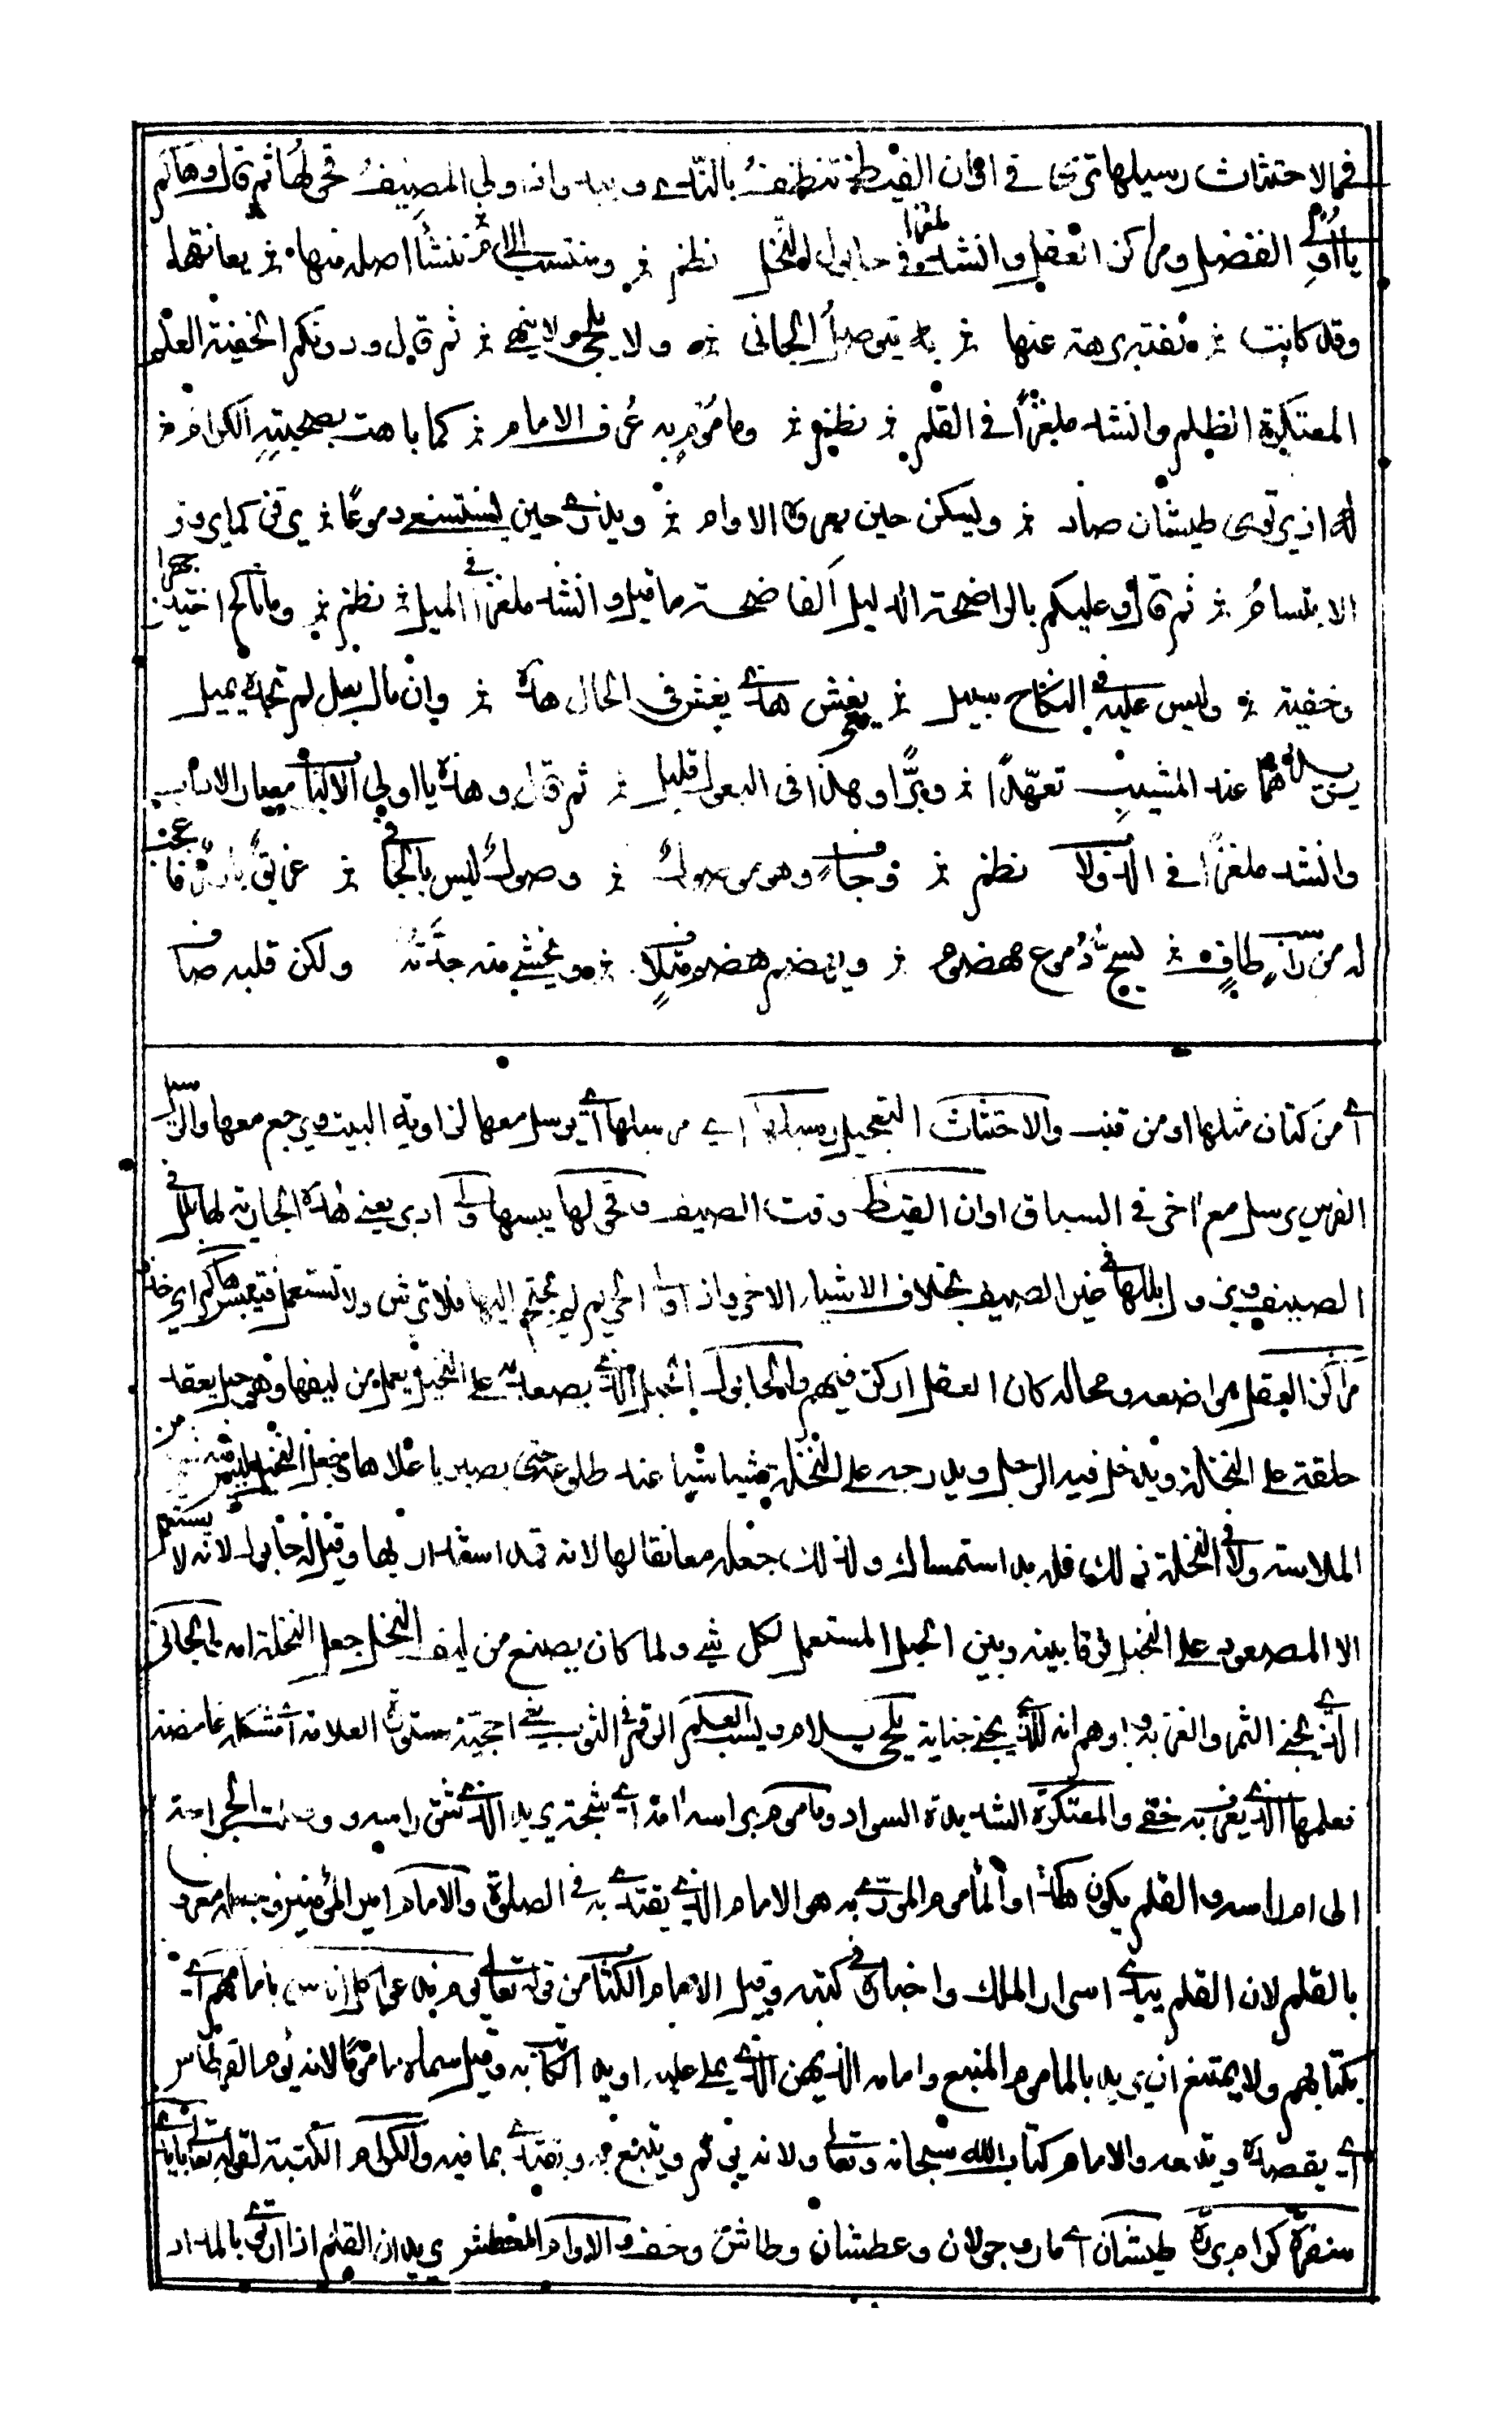 في الاحتثاث رسيلها ترى في اوان القيظ تنظف بالندى ويبدو اذا ولى المصيف قحولها ثم قال وهاكم
يا أولي الفضل ومراكز العقل وانشد ملغزا في حابول النخل نظم ومنتسب الى ام تنشأ اصله منها يعانقها
وقد كانت نفته برهة عنها به يتوصل الجاني ولا يلحى ولا ينهى ثم قال ودونكم الخفية العلم
المعتكرة الظلم وانشد ملغزا في القلم نظم وماموم به عرف الامام كما باهت بصحبته الكرام
له اذ يرتوي طيشان صاد ويسكن حين يعروه الاوام ويذري حين يستسعى دموعا يرقن كما يروق
الابتسام ثم قال وعليكم بالواضحة الدليل الفاضحة ما قيل وانشد ملغزا في الميل نظم وما ناكح اختين جهرا
وخفية وليس عليه في النكاح سبيل متى يغش هذي يغش في الحال هذه وان مال بعل لم تجده يميل
يزيدهما عند المشيب تعهدا وبرا وهذا في البعول قليل ثم قال وهذه يا اولي الالباب معيار الاداب
وانشد ملغزا في الدولاب نظم وجاف وهو موصول وصول ليس بالجافي غريق بارز فاعجب
له من راسب طاف يسح دموع مهضوم ويهضم هضم متلاف ويخشى منه حدته ولكن قلبه صاف
أي من كتان مثلها او من قنب والاحتثاث التعجيل رسيلها اي مرسلها أي يرسل معها لزاوية البيت ويرجع معها والرسيل
الفرس يرسل مع اخر في السباق اوان القيظ وقت الصيف وقحولها يبسها ولى ادبر يعني هذه الجارية لها بلل في
الصيف ويزول بللها في غير الصيف بخلاف الاشياء الاخر واذا ولى الحر لم يحتج اليها فلا ترش ولا تستعمل فتيبس هاكم اي خذوا
مراكز العقل مواضعه ومحاله كان العقل اركز فيهم والحابول الحبل الذي يصعد به على النخيل يعمل من ليفها وهو حبل يعقد
حلقة على النخلة ويدخل فيه الرجل ويدرجه على النخلة شيئا شيئا عند طلوعه حتى يصير باعلاها من
الملاسة ولا في النخلة ذلك فله به استمساك ولذلك جعله معانقا لها لانه قد استدار بها وقيل له حابول لانه لا يستعمل
الا المصعود على النخل فرقا بينه وبين الحبل المستعمل لكل شي ولما كان يصنع من ليف النخل جعل النخلة امه الجاني
الذي يجني الثمر والغز به واوهم انه الذي يجني جناية يلحى يسلام ويسب العلم الرقم في الثوب يعني احجية مستورة العلامة أي مشكلة غامضة
فعلمها الذي يعرف به خفي والمعتكرة الشديدة السواد وماموم براسه امة أي شجة يريد الذي شق راسه ووصلت الجراحة
الى ام راسه والقلم يكون هكذا او المأموم المؤتم به هو الامام الذي يقتدى به في الصلوة والامام امير المؤمنين
بالقلم لان القلم يبدي اسرار الملك واخباره في كتبه وقيل الامام الكتاب من قوله تعالى يوم ندعو كل اناس بامامهم أي
بكتابهم ولا يمتنع ان يريد بالماموم المتبع وامامه الذهن الذي يملي عليه او يد الكتابة وقيل سماه ماموما لانه يؤم القرطاس
أي يقصده والامام كتاب الله سبحانه وتعالى ولانه يؤتم ويتبع ويقتدى بما فيه والكرام الكتبة لقوله تعالى بايدي
سفرة كرام بررة طيشان أي مارب جولان وعطشان وطاش وخف والاوام العطش يريد ان القلم اذا ارتوى بالمداد